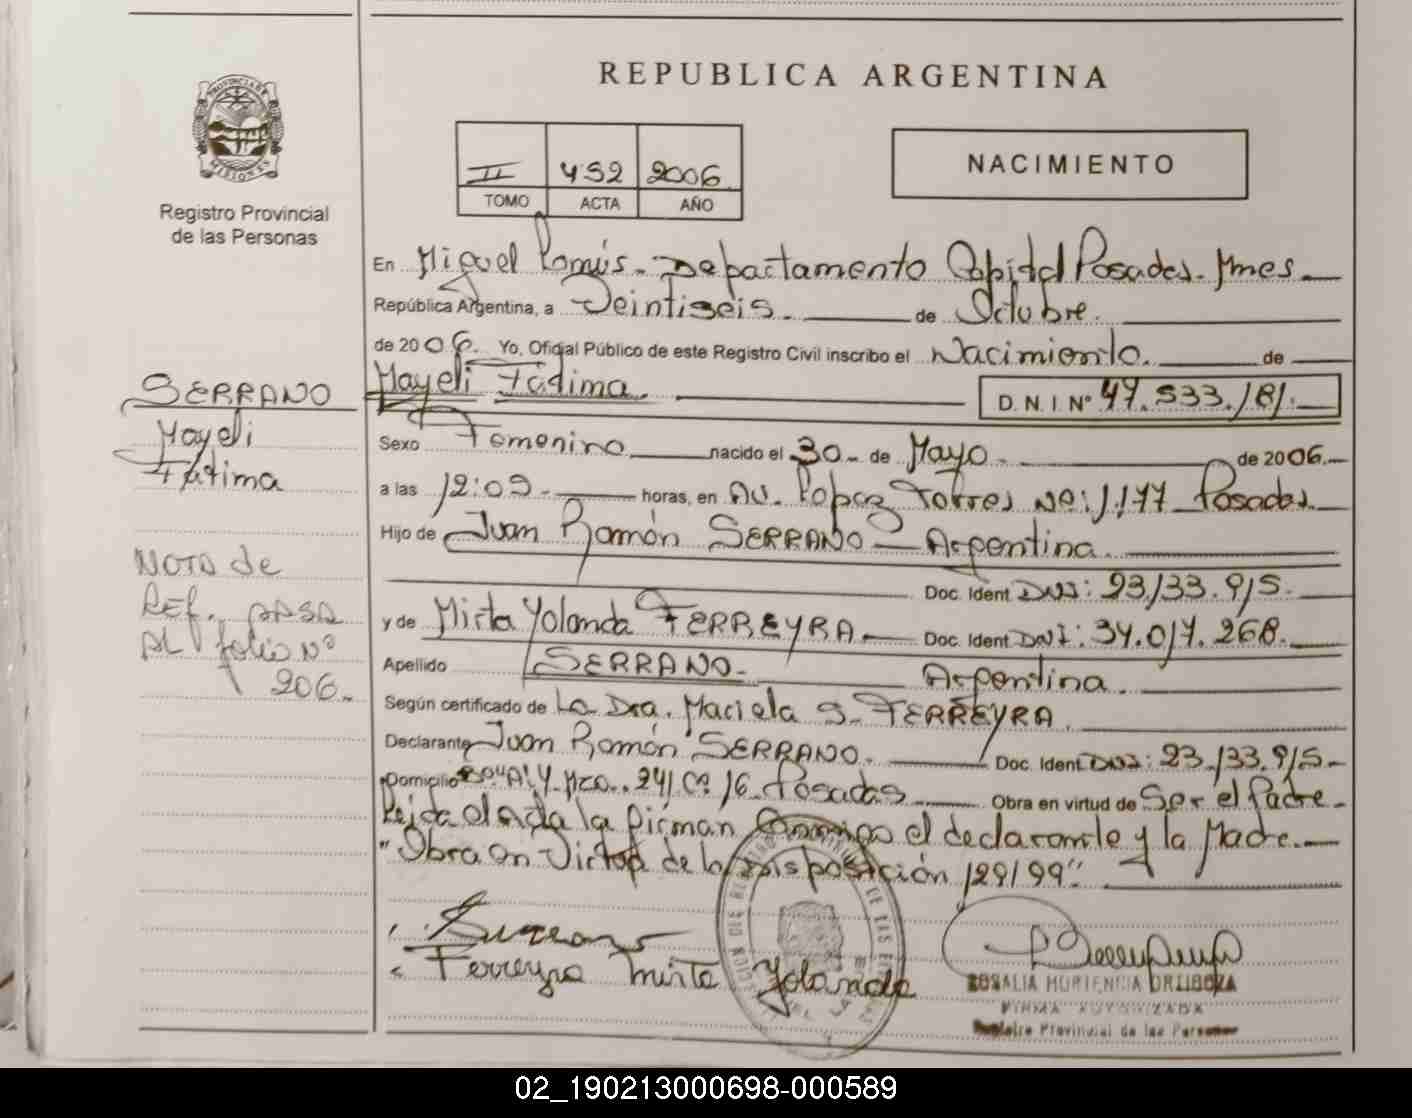 REPUBLICA ARGENTINA
PROVINCIA DE
MISIONES
Registro Provincial
de las Personas
II 452 2006
TOMO ACTA AÑO
NACIMIENTO
En Miguel Lanús. Departamento Capital Posadas. Mnes
República Argentina, a Veintiseis. de Octubre.
de 2006. Yo, Oficial Público de este Registro Civil inscribo el Nacimiento. de
Mayeli Fátima. D. N. I. Nº 47.533.181.
SERRANO
Mayeli
Fátima
Sexo Femenino nacido el 30 de Mayo de 2006.
a las 12:09 horas, en AV. López Torres Nº: 1.177 Posadas.
Hijo de Juan Ramón SERRANO Argentina.
Doc. Ident. DNI: 23.133.915.
y de Mirta Yolanda FERREYRA Doc. Ident. DNI: 34.017.268.
Apellido SERRANO. Argentina.
NOTA de
REF. PASA
AL folio Nº
206.
Según certificado de La Dra. Mariela S. FERREYRA.
Declarante Juan Ramón SERRANO. Doc. Ident. DNI: 23.133.915
Domicilio Bº A4 Mza. 241 Cª 16 Posadas Obra en virtud de Ser el Padre
Leida el Acta la firman Conmigo el declarante y la Madre.
"Obra en Virtud de la Disposición 129/99"
Serrano
Ferreyra Mirta Yolanda
ROSALIA HORTENCIA ORIBOZA
FIRMA AUTORIZADA
Registro Provincial de las Personas
02_190213000698-000589